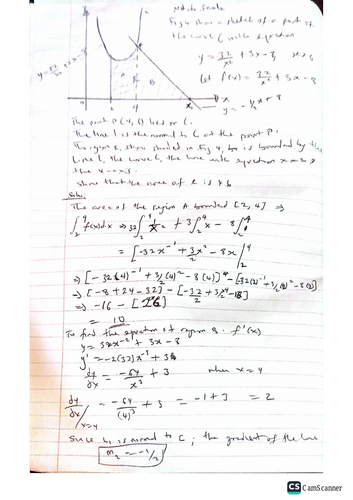 Not to Scale
Fig 4 shows a sketch of a part of
the curve C with equation
y = 32/x² + 3x - 8, x > 0
Let f(x) = 32/x² + 3x - 8
y = 32/x² + 3x - 8
A
B
x
y = -1/2x + 8
The point P(4, 6) lies on C.
The line l is the normal to C at the point P.
The region R, shown shaded in Fig 4, is bounded by the
line l, the curve C, the line with equation x = 2 &
the x-axis.
Show that the area of R is 46
Soln:
The area of the region A bounded [2, 4] ⇒
∫₂⁴ f(x)dx ⇒ 32∫₂⁴ 1/x² + 3∫₂⁴ x - 8∫₂⁴ 1
= [-32x⁻¹ + 3/2x² - 8x]₂⁴
⇒ [-32(4)⁻¹ + 3/2(4)² - 8(4)] - [-32(2)⁻¹ + 3/2(2)² - 8(2)]
⇒ [-8 + 24 - 32] - [-32/2 + 3/2·4 - 16]
⇒ -16 - [26]
= 10
To find the equation of region B: f'(x)
y = 32x⁻² + 3x - 8
y' = -2(32)x⁻³ + 3
dy/dx = -64/x³ + 3 when x = 4
dy/dx/x=4 = -64/(4)³ + 3 = -1 + 3 = 2
Since l is normal to C; the gradient of the line
m₂ = -1/2
CS CamScanner